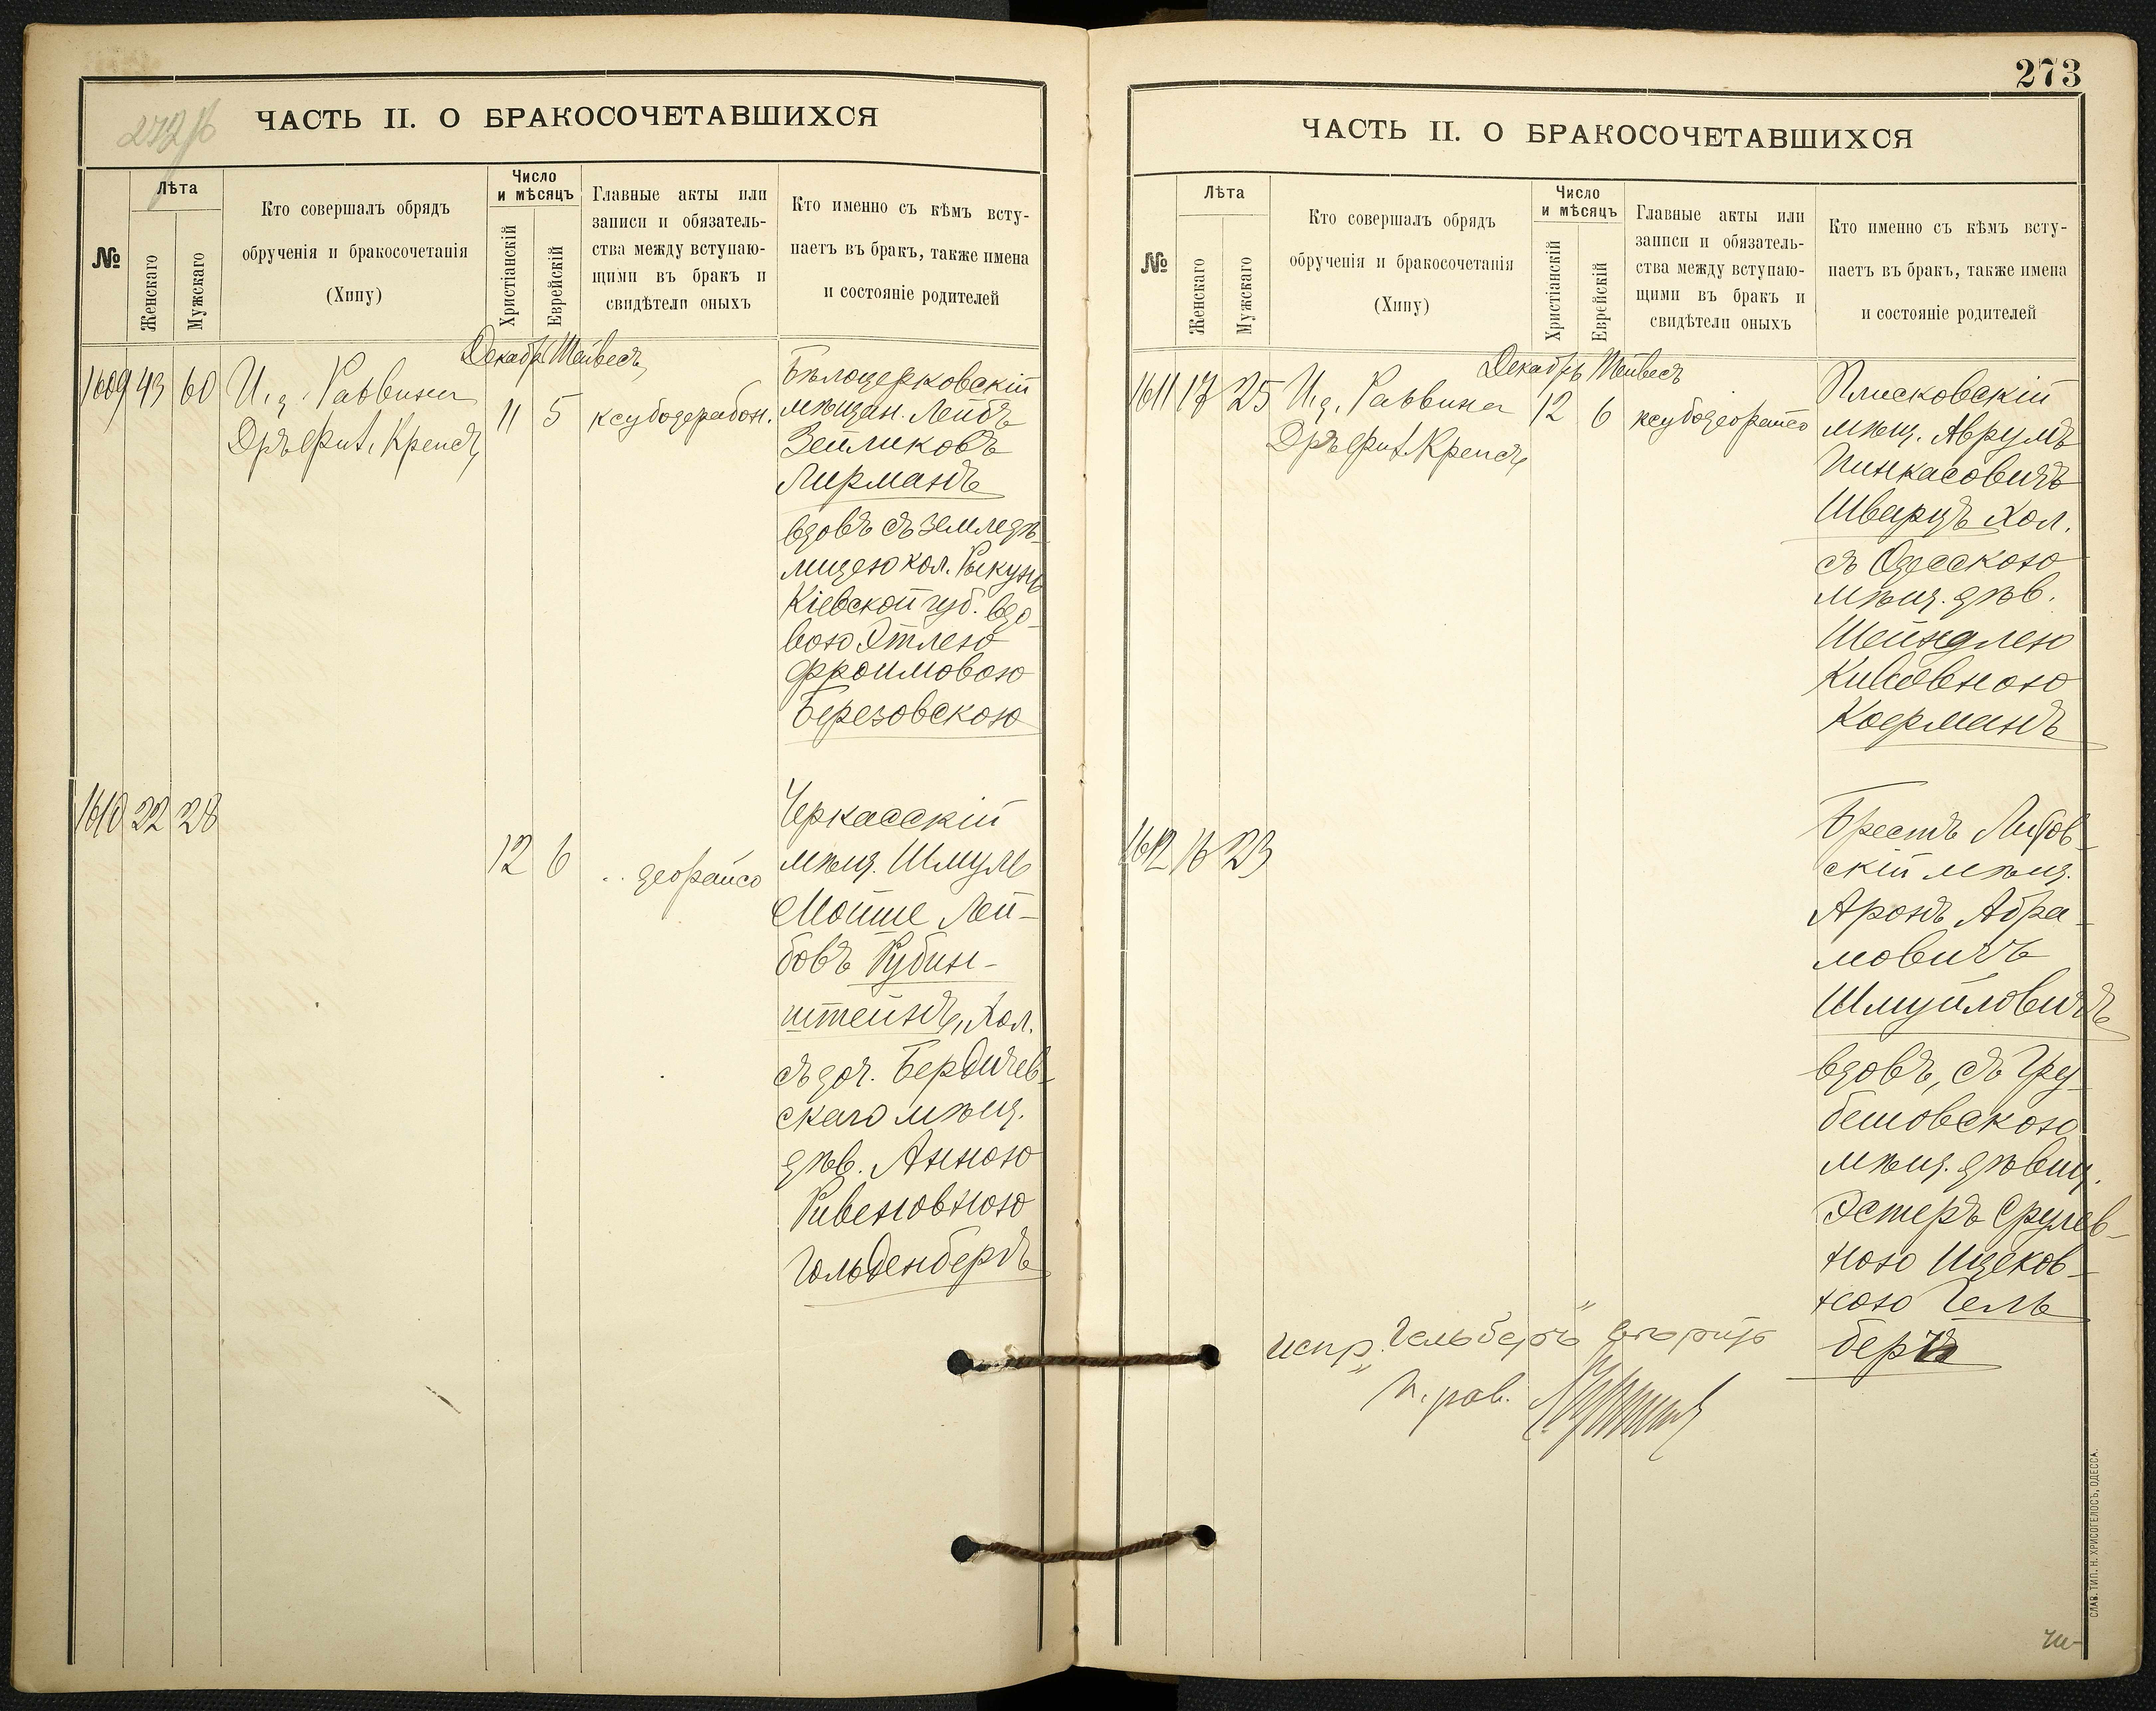 272 об
ЧАСТЬ II. О БРАКОСОЧЕТАВШИХСЯ
№
Лѣта
Женскаго
Мужскаго
Кто совершалъ обрядъ
обрученія и бракосочетанія
(Хипу)
Число
и мѣсяцъ
Христіанскій
Еврейскій
Главные акты или
записи и обязатель-
ства между вступаю-
щими въ бракъ и
свидѣтели оныхъ
Кто именно съ кѣмъ всту-
паетъ въ бракъ, также имена
и состояніе родителей
Декабр Тейвесъ
1609 43 60 И. д. Раввина
Дръ Фил. Крепсъ
11 5 ксубодерабон.
Бѣлоцерковскій
мѣщан. Лейбъ
Зейликовъ
Лирманъ
вдовъ съ земледѣ-
лицею кол. Рыкунь
Кіевской губ. вдо-
вою Этлею
Фроимовою
Березовскою
1610 22 28
12 6 .. деорайсо
Черкасскій
мѣщ. Шмуль
Мойше Лей-
бовъ Рубин-
штейнъ, Хол.
съ доч. Бердичев-
скаго мѣщ.
дѣв. Анною
Рувеновною
Гольденбергъ
273
ЧАСТЬ II. О БРАКОСОЧЕТАВШИХСЯ
№
Лѣта
Женскаго
Мужскаго
Кто совершалъ обрядъ
обрученія и бракосочетанія
(Хипу)
Число
и мѣсяцъ
Христіанскій
Еврейскій
Главные акты или
записи и обязатель-
ства между вступаю-
щими въ бракъ и
свидѣтели оныхъ
Кто именно съ кѣмъ всту-
паетъ въ бракъ, также имена
и состояніе родителей
Декабрь Тейвесъ
1611 17 25 И. д. Раввина
Дръ Фил. Крепсъ
12 6 ксубодеорайсо
Плисковскій
мѣщ. Аврумъ
Пинкасовичъ
Шварцъ Хол.
съ Одесскою
мѣщ. дѣв.
Шейндлею
Кивовною
Коерманъ
1612 16 23
Брестъ Литов-
скій мѣщ.
Аронъ Абра-
мовичъ
Шмуйловичъ
вдовъ, съ Гру-
бешовскою
мѣщ. дѣвиц.
Эстеръ Срулев-
ною Ицков-
ною Гель
бергъ
испр. „Гельбергъ“ вѣрить
И. рав.
СЛАВ. ТИП. Н. ХРИСОГЕЛОСЪ, ОДЕССА.